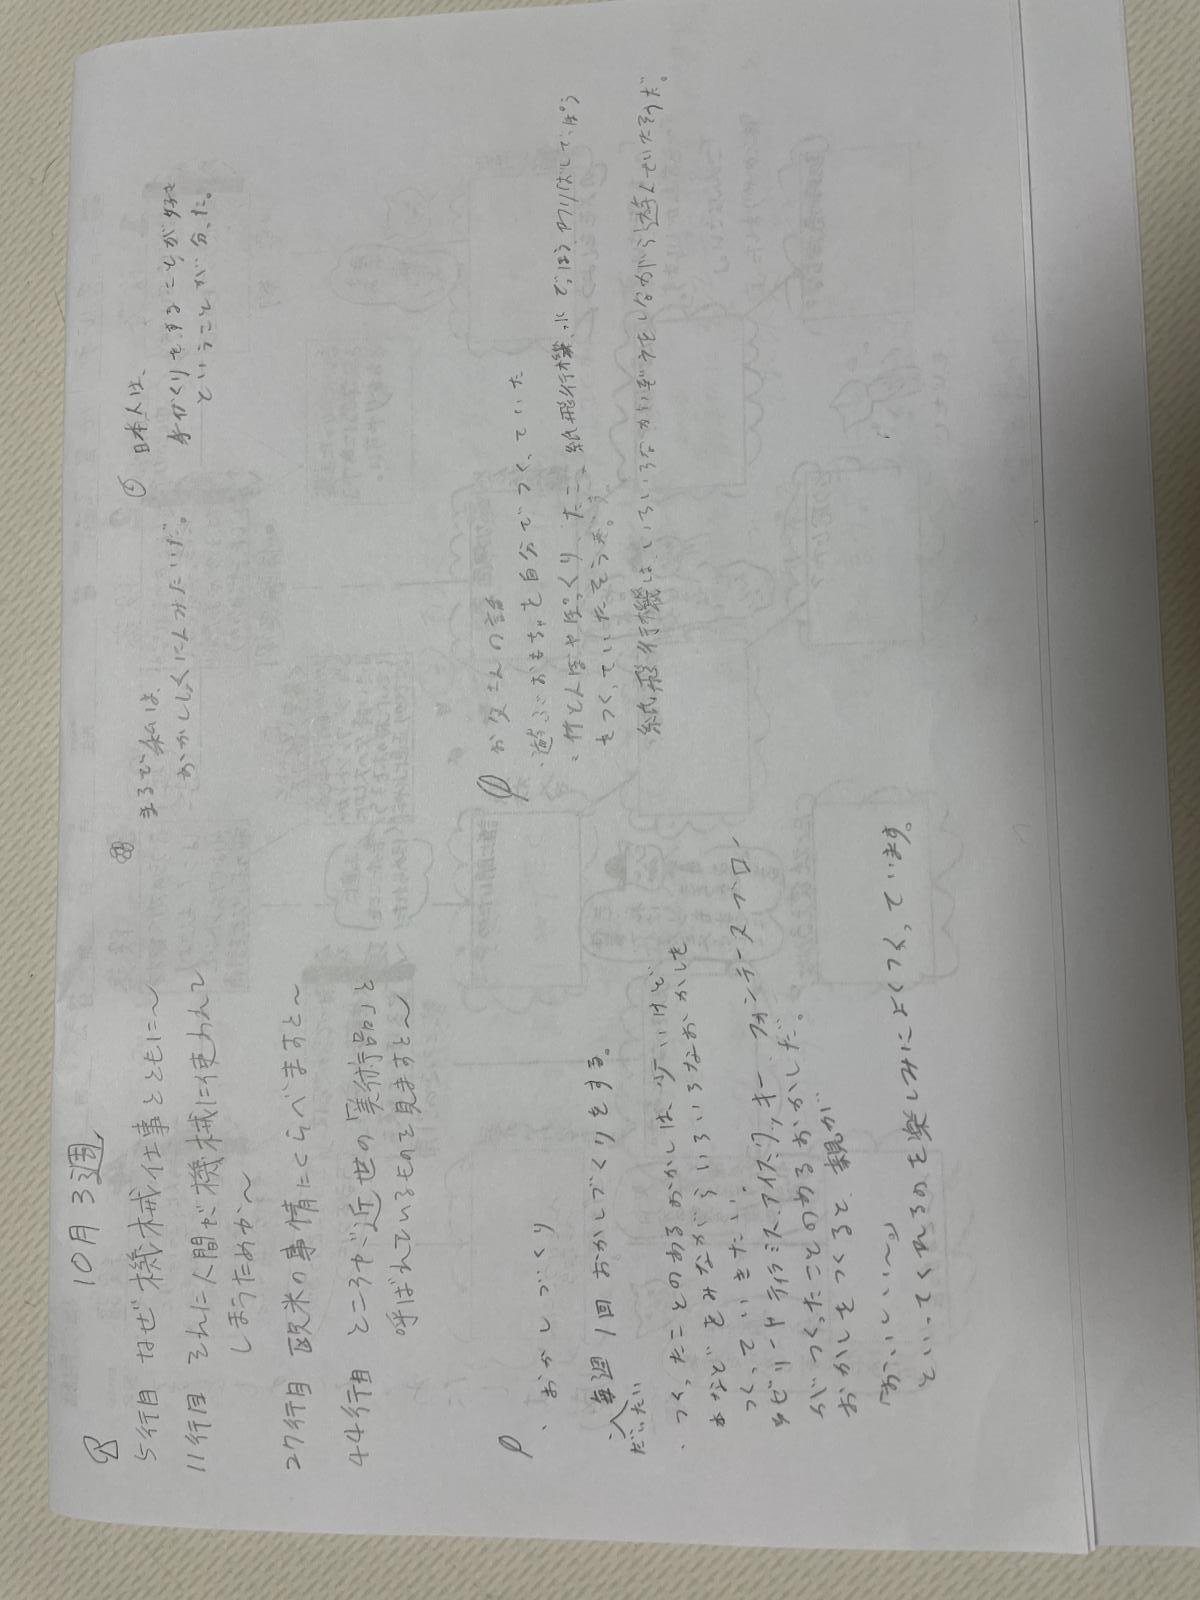 10月3週
5行目 なぜ機械仕事とともに〜
11行目 それに人間が機械に使われて
しまうためか〜
27行目 欧米の事情にくらべますと〜
44行目 ところが近世の「実術品」と
呼ばれているものを見ますと〜
まるで私は、
おかししょくにんみたいだ。
日本人は、
手づくりをすることが好き
ということが分った。
・おかしづくり
毎週1回おかしづくりをする。
だいたい
・つくったことのあるおかしは少いけど
本などをみながらいろいろなおかしを
つくっていきたい。
ゼリー アイスクッキー フォンデ
がつくったことのあるおかしだ。
おかしをつくると親が
「おいしい〜」
といってくれるのを楽しみによくつくっています。
お父さんの話
・遊ぶおもちゃを自分でつくっていた
・竹とんぼやぽっくり、たこ、紙飛行機、水でっぽう わりばしでっぽう
をつくっていたそうだ。
紙飛行機は、いろいろなかいぞうをしながら遊んでいたそうだ。